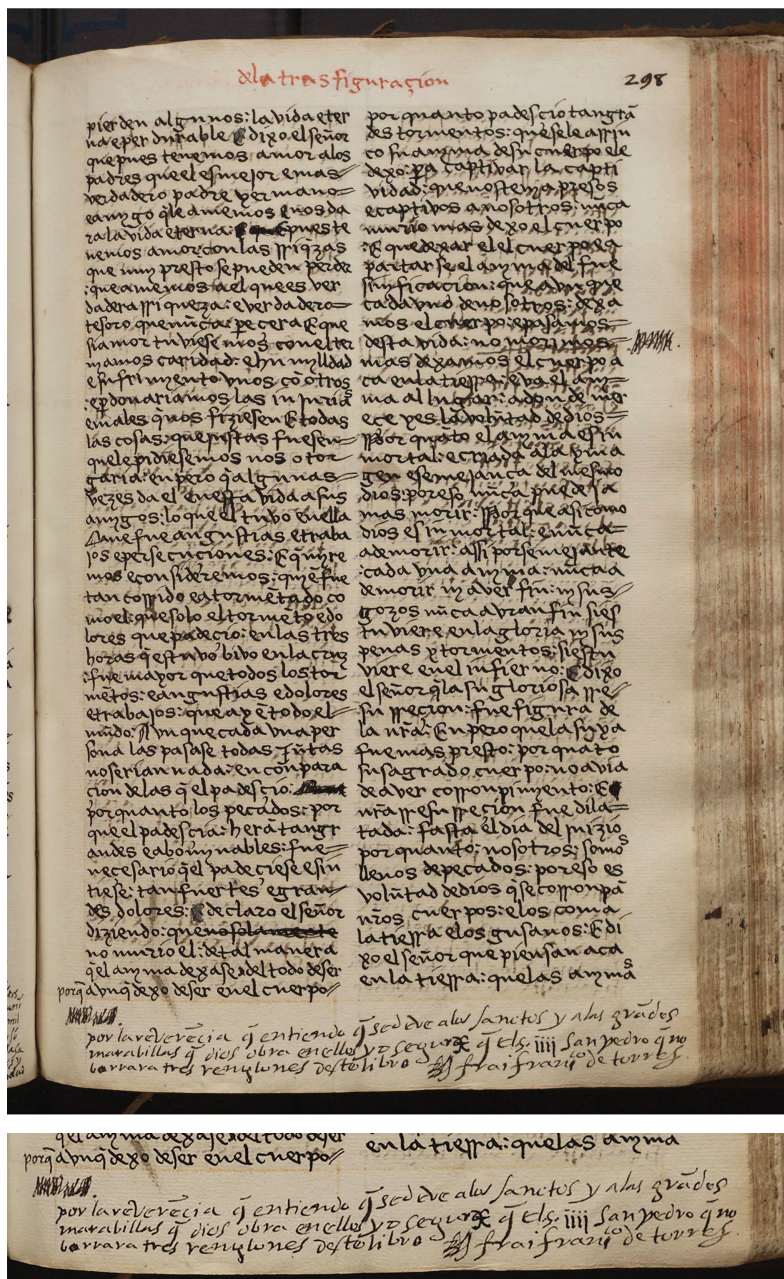 dela trasfiguraçion
298
pierden algunos: la vida eter
na e per durable E dixo el señor
que pues tenemos amor alos
padres que el es mejor e mas
verdadero padre y ermano
e amygo q̃ le amemos e nos da
ra la vida eterna: pues te
nemos amor con las rriqzas
que muy presto se pueden perder
: que amemos a el que es ver
dadera rriqueza: e verdadero
tesoro que nũca pe cera E que
si amor tuviesemos con el ter
niamos caridad: e hu mylldad
e sufri myento vnos cõ otros
: e pdonariamos las in jurias
e males q̃ nos fiziesen E todas
las cosas: que justas fuesen
que le pidiesemos nos o tor
garia: en pero q̃ algunas
vezes da el en esta vida a sus
amygos: lo que el tuvo en ella
Que fue angustias e traba
jos e persecuciones: E q̃ myre
mos e consideremos: quiẽ fue
tan corrido e a tormẽtado co
mo el: que solo el tormẽto e do
lores que padecio: en las tres
horas q̃ estuvo bivo en la cruz
: fue mayor que todos los tor
mẽtos: e angustias e dolores
e trabajos: que a y ẽ todo el
mũdo: A vn que cada vna per
sona las pasase todas Jũtas
no serian nada: en cõnpara
cion de las q̃ el padescio:
por quanto los pecados: por
que el padescia: herã tangr
andes e abomynables: fue
necesario q̃l padeciese e sin
tiese: tan fuertes e gran
des dolores: E declaro el señor
diziendo: que no solamente
no murio el: de tal manera
q̃ el anyma dexase del todo de ser
porq̃ avnq̃ dexo de ser en el cuerpo
por quanto padescio tan grã
des tormentos: que se le arrin
co su anyma de su cuerpo e le
dexo: pa captivar la capti
vidad: que nos tenya presos
e captivos a nosotros: nũca
murio mas dexo el cuerpo
: E que dexar el el cuerpo e a
partarse el anyma del fue
sinificacion: que avn que
cada vno de nosotros: dexa
mos el cuerpo: e pasamos
desta vida: no morimos
mas dexamos el cuerpo a
ca en la tierra: e va el any
ma al lugar: a donde mer
ece y es la volũtad de dios
Por quãto el anyma es in
mortal: e criada a la yma
gen e semejança del mesmo
dios: por eso nũca puede ja
mas morir: Por que asi como
dios es in mortal: e nũca
a de morir: assi por semejante
: cada vna anyma: nũca a
de morir ny aver fin: ny sus
gozos nũca avran fin si es
tuviere en la gloria ny sus
penas y tormentos: si estu
viere en el infierno: E dixo
el señor q̃ la su gloriosa rre
surrecion: fue figura de
la nr̃a: Enpero que la suya
fue mas presto: por quãto
su sagrado cuerpo: no avia
de aver corronpimento: E
nr̃a rresurreçion fue dila
tada: fasta el dia del juizio
por quanto: nosotros: somos
llenos de pecados: por eso es
volũtad de dios q̃ se corronpã
nr̃os cuerpos: e los coma
la tierra e los gusanos: E di
xo el señor que piensan aca
en la tierra: que las anymas
por la reverẽcia q̃ entiendo q̃ se deve a los sanctos y a las grãdes
marabillas q̃ dios obra en ellos y o segun q̃ El S. iiii San pedro q̃ no
borrara tres renglones deste libro frai franco de torres